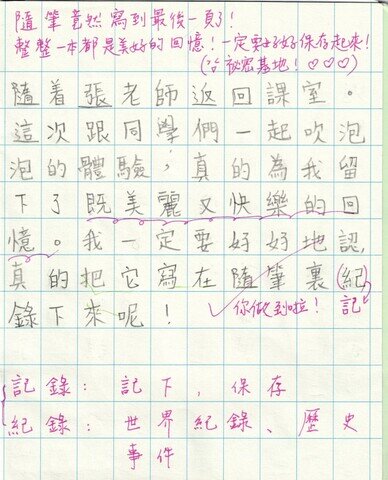 隨筆竟然寫到最後一頁了!
整整一本都是美好的回憶!一定要好好保存起來!
(沿祕密基地!♡♡♡)
隨着張老師返回課室。
這次跟同學們一起吹泡
泡的體驗,真的為我留
下了既美麗又快樂的回
憶。我一定要好好地認
真的把它寫在隨筆裏(紀
記
錄下來呢!
你做到啦!
記錄:記下,保存
紀錄:世界紀錄、歷史
事件